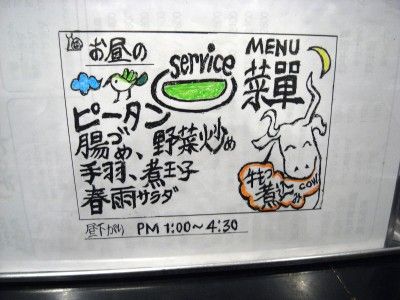 お昼の
service
MENU
菜單
ピータン
腸づめ、野菜炒め
手羽、煮玉子
春雨サラダ
牛モツ
煮込み
COW!
昼下がり PM 1:00~4:30